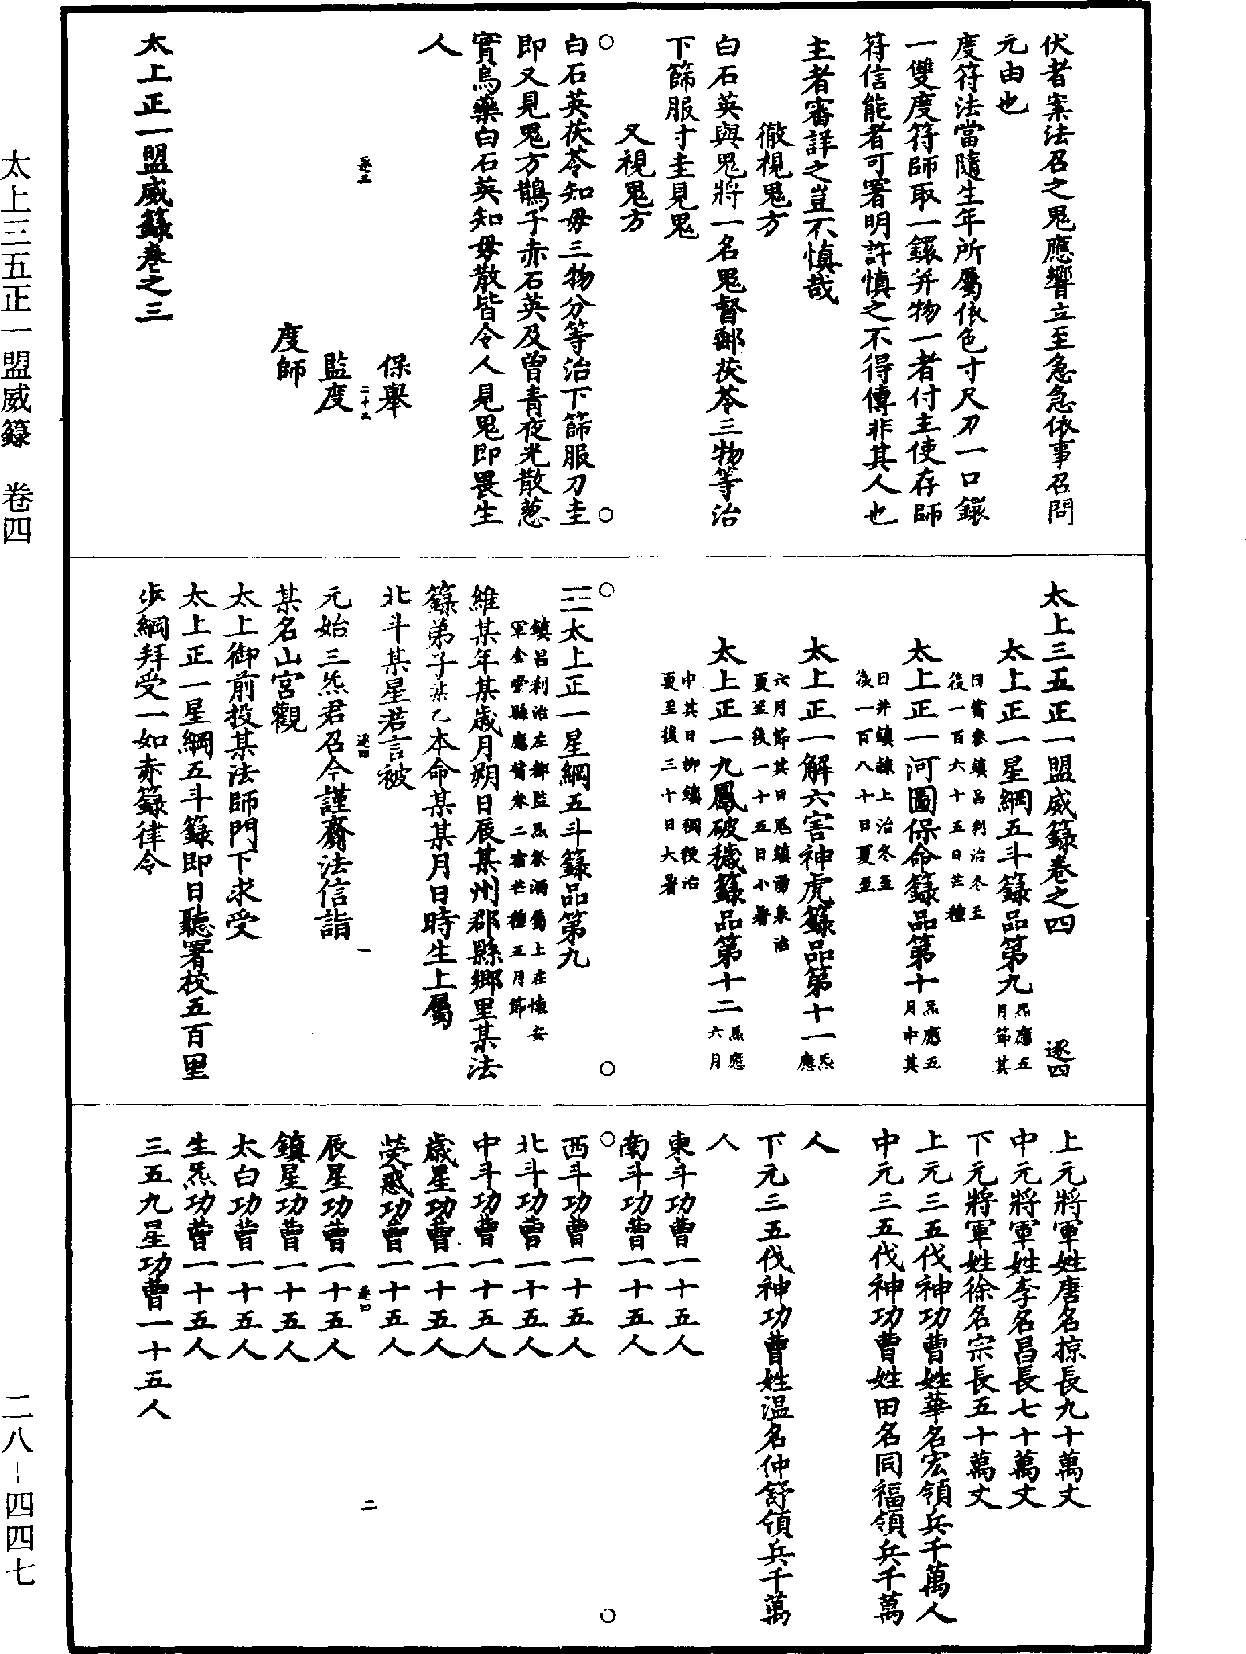 伏者案法召之鬼應響立至急急依事召問
元由也
度符法當隨生年所屬依色寸尺刀一口鐶
一雙度符師取一鐶并物一者付主使存師
符信能者可署明許慎之不得傳非其人也
主者審詳之豈不慎哉
徹視鬼方
白石英與鬼將一名鬼督郵茯苓三物等治
下篩服寸圭見鬼
又視鬼方
白石英茯苓知母三物分等治下篩服刀圭
即又見鬼方鵲子赤石英及曾青夜光散葱
實烏藥白石英知母散皆令人見鬼即畏生
人
保舉
監度
度師
太上正一盟威籙卷之三
太上三五正一盟威籙卷之四
逐四
太上正一星綱五斗籙品第九
炁應五月節其日觜參鎮昌利治冬至後一百六十五日芒種
太上正一河圖保命籙品第十
炁應五月中其日井鎮隸上治冬至後一百八十日夏至
太上正一解六害神虎籙品第十一
炁應六月節其日鬼鎮湧泉治夏至後一十五日小暑
太上正一九鳳破穢籙品第十二
炁應六月中其日柳鎮稠稉治夏至後三十日大暑
太上正一星綱五斗籙品第九
鎮昌利治左都監炁祭酒屬上在懷安
軍金堂縣應觜參二宿芒種五月節
維某年某歲月朔日辰某州郡縣鄉里某法
籙弟子某乙本命某某月日時生上屬
北斗某星君言被
元始三炁君召今謹齎法信詣
某名山宮觀
太上御前投某法師門下求受
太上正一星綱五斗籙即日聽署校五百里
步綱拜受一如赤籙律令
上元將軍姓唐名掠長九十萬丈
中元將軍姓李名昌長七十萬丈
下元將軍姓徐名宗長五十萬丈
上元三五伐神功曹姓華名宏領兵千萬人
中元三五伐神功曹姓田名同福領兵千萬
人
下元三五伐神功曹姓温名仲舒領兵千萬
人
東斗功曹一十五人
南斗功曹一十五人
西斗功曹一十五人
北斗功曹一十五人
中斗功曹一十五人
歲星功曹一十五人
熒惑功曹一十五人
辰星功曹一十五人
鎮星功曹一十五人
太白功曹一十五人
生炁功曹一十五人
三五九星功曹一十五人
太上三五正一盟威籙 卷四
二八-四四七